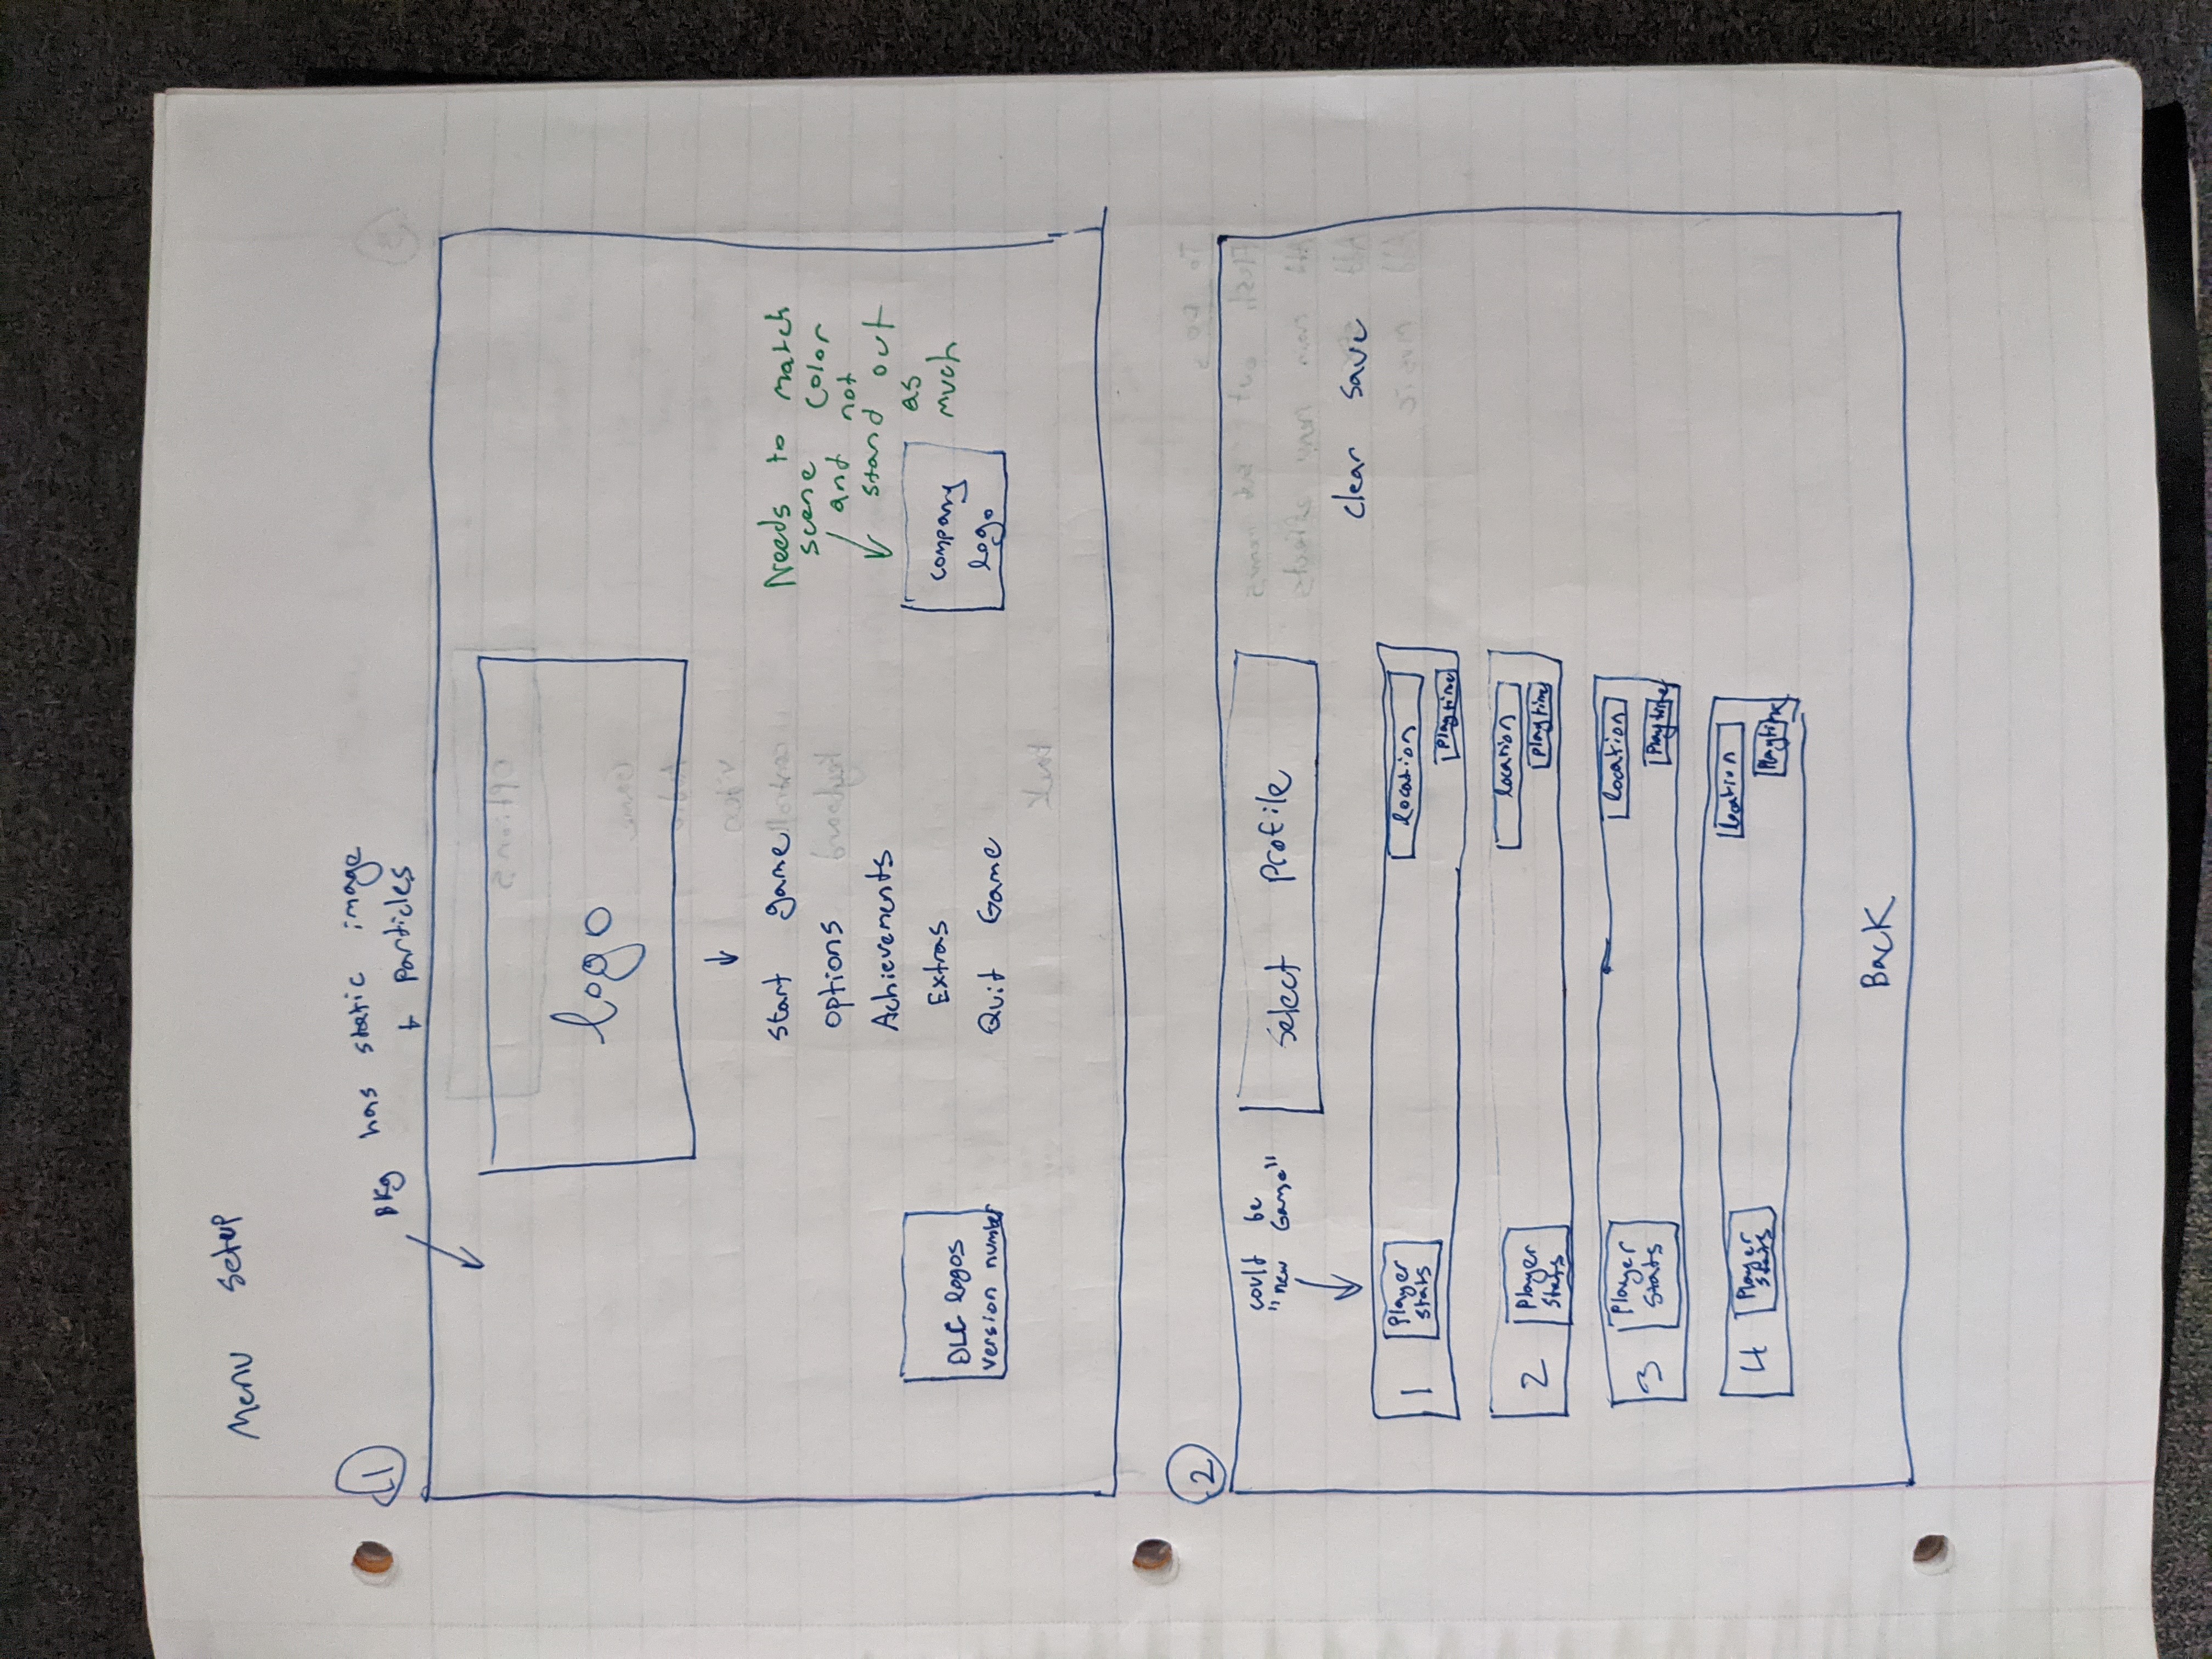 Menu Setup
1
Bkg has static image
+ particles
logo
↓
Start game
options
Achievements
Extras
Quit Game
DLC logos
version number
Needs to match
scene color
and not
stand out
as
much
company
logo
2
could be
"new Game"
Select Profile
clear save
1
Player
stats
location
Playtime
2
Player
stats
location
Playtime
3
Player
stats
location
Playtime
4
Player
stats
location
Playtime
Back